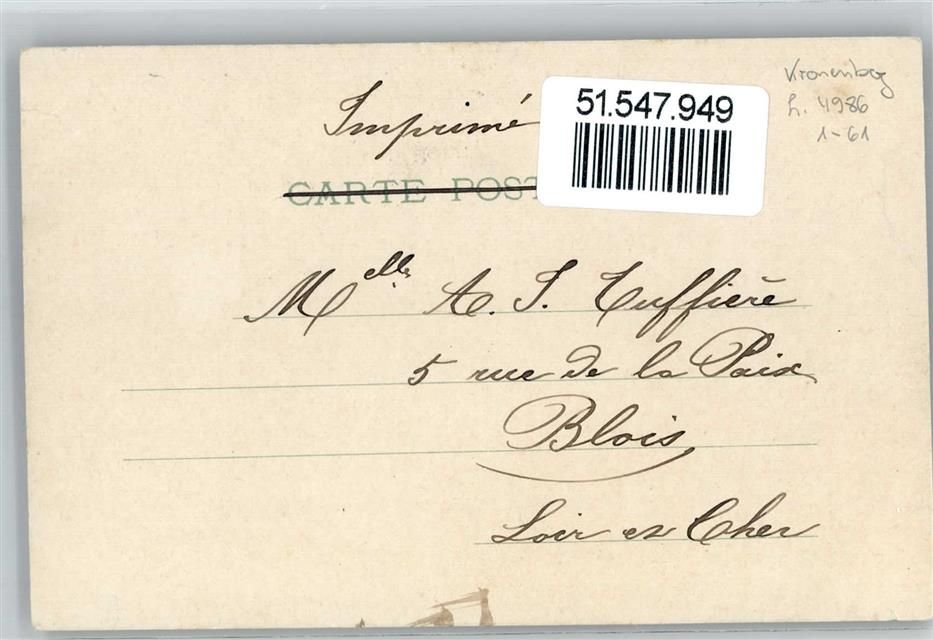 Kronenberg
L. 4986
1-61
Imprimé
51.547.949
CARTE POST
Melle A. J. Tuffière
5 rue de la Paix
Blois
Loir et Cher